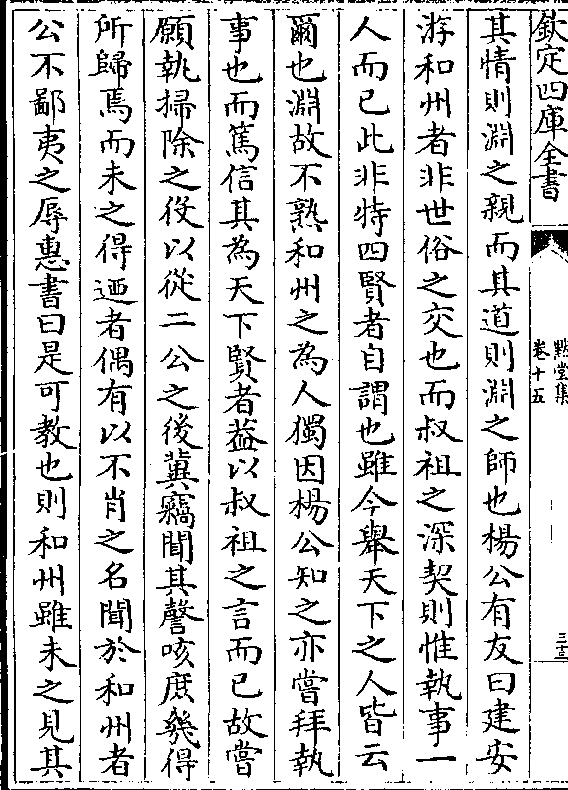 欽定四庫全書
默堂集
卷十五
三十二
其情則淵之親而其道則淵之師也楊公有友曰建安
游和州者非世俗之交也而叔祖之深契則惟執事一
人而已此非特四賢者自謂也雖今舉天下之人皆云
爾也淵故不熟和州之為人獨因楊公知之亦嘗拜執
事也而篤信其為天下賢者葢以叔祖之言而已故嘗
願執掃除之役以從二公之後冀竊聞其謦咳庶幾得
所歸焉而未之得迺者偶有以不肖之名聞於和州者
公不鄙夷之辱惠書曰是可教也則和州雖未之見其